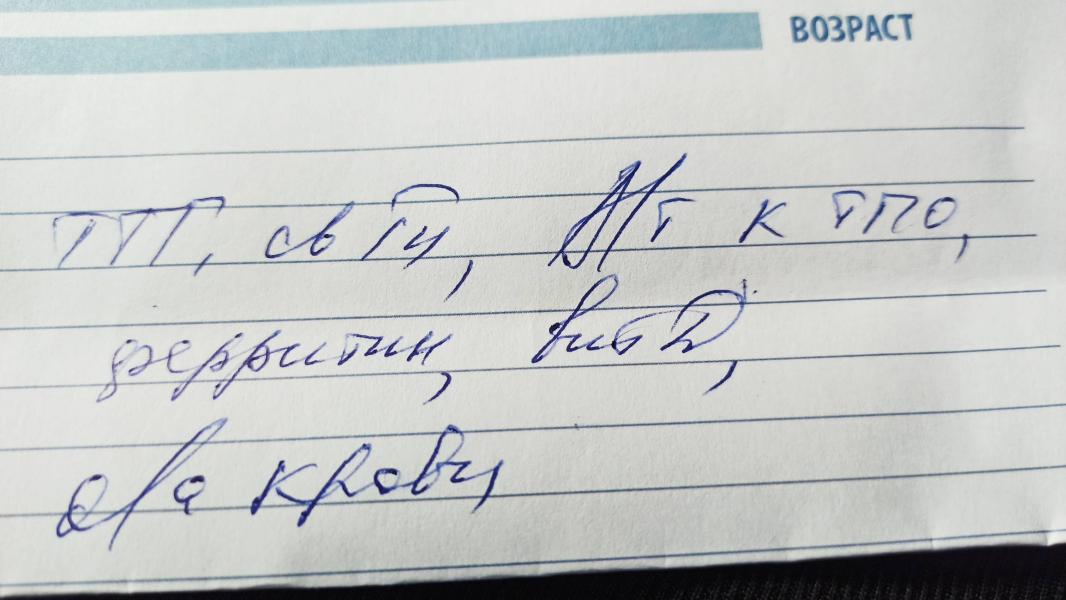 ВОЗРАСТ
ТТГ, св Т4, А/т к ТПО,
ферритин, вит Д,
о/а крови